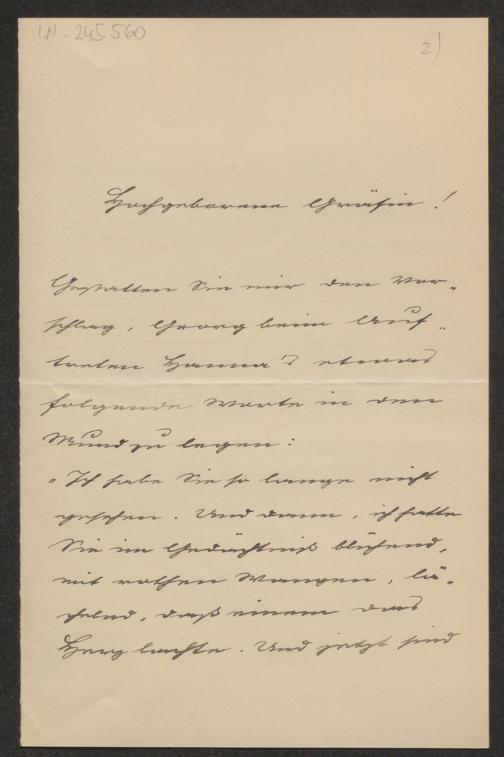 I.N. 245.560
2)
Hochgeborene Gräfin!
Gestatten Sie mir den Vor-
schlag, Georg beim Auf-
treten Hanna's etwas
folgende Worte in den
Mund zu legen:
"Ich habe Sie so lange nicht
gesehen. Und dann, ich hatte
Sie im Gedächtniß blühend,
mit rothen Wangen, lä-
chelnd, daß einem das
Herz lachte. Und jetzt sind